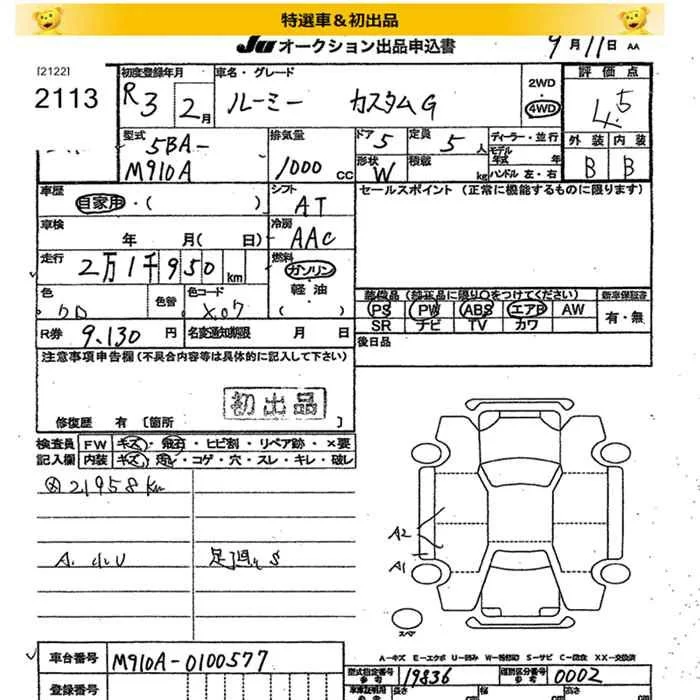 特選車&初出品
JU オークション出品申込書 9月11日 AA
[2122]
2113
初度登録年月 R3 2月
車名・グレード ルーミー カスタムG
2WD ・ 4WD
評価点 4.5
外装 内装
B B
型式 5BA- M910A
排気量 1000 CC
ドア 5 定員 5人
形状 W 積載 kg
ディーラー・並行
モデル年式 年
ハンドル 左・右
車歴 自家用・( )
シフト AT
セールスポイント (正常に機能するものに限ります)
車検 年 月( 日)
冷房 AAC
走行 2万1千950km
燃料 ガソリン
軽・油
( )
色 色替
色コード X07
装備品(純正品に限り○をつけてください) 新車保証書
PS PW ABS エアB AW 有・無
SR ナビ TV カワ
R券 9.130円 名変通知期限 月 日
後日品
注意事項申告欄(不具合内容等は具体的に記入して下さい)
初出品
修復歴 有 [箇所 ]
検査員 FW キズ・飛石・ヒビ割・リペア跡・×要
記入欄 内装 キズ・・コゲ・穴・スレ・キレ・破レ
21958km
A. 小U 足廻りS
A2
A1
スペア
A-キズ E-エクボ U-凹み W-補修跡 S-サビ C-腐食 XX-交換済
車台番号 M910A-0100577
型式指定番号 19836 類別区分番号 0002
登録番号
長さ 幅 高さ